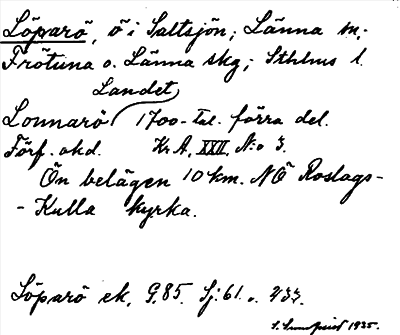 Löparö, ö i Saltsjön; Länna m.
Frötuna o. Länna skg; Sthlms l.
Landet
Lonnarö 1700-tal. förra del.
Förf. okd. Kr. A. XXII. N:o 3.
Ön belägen 10 km. NÖ Roslags-
- Kulla kyrka.
Löparö ek, G. 85. Sj: 61. o. 233.
S. 1935.